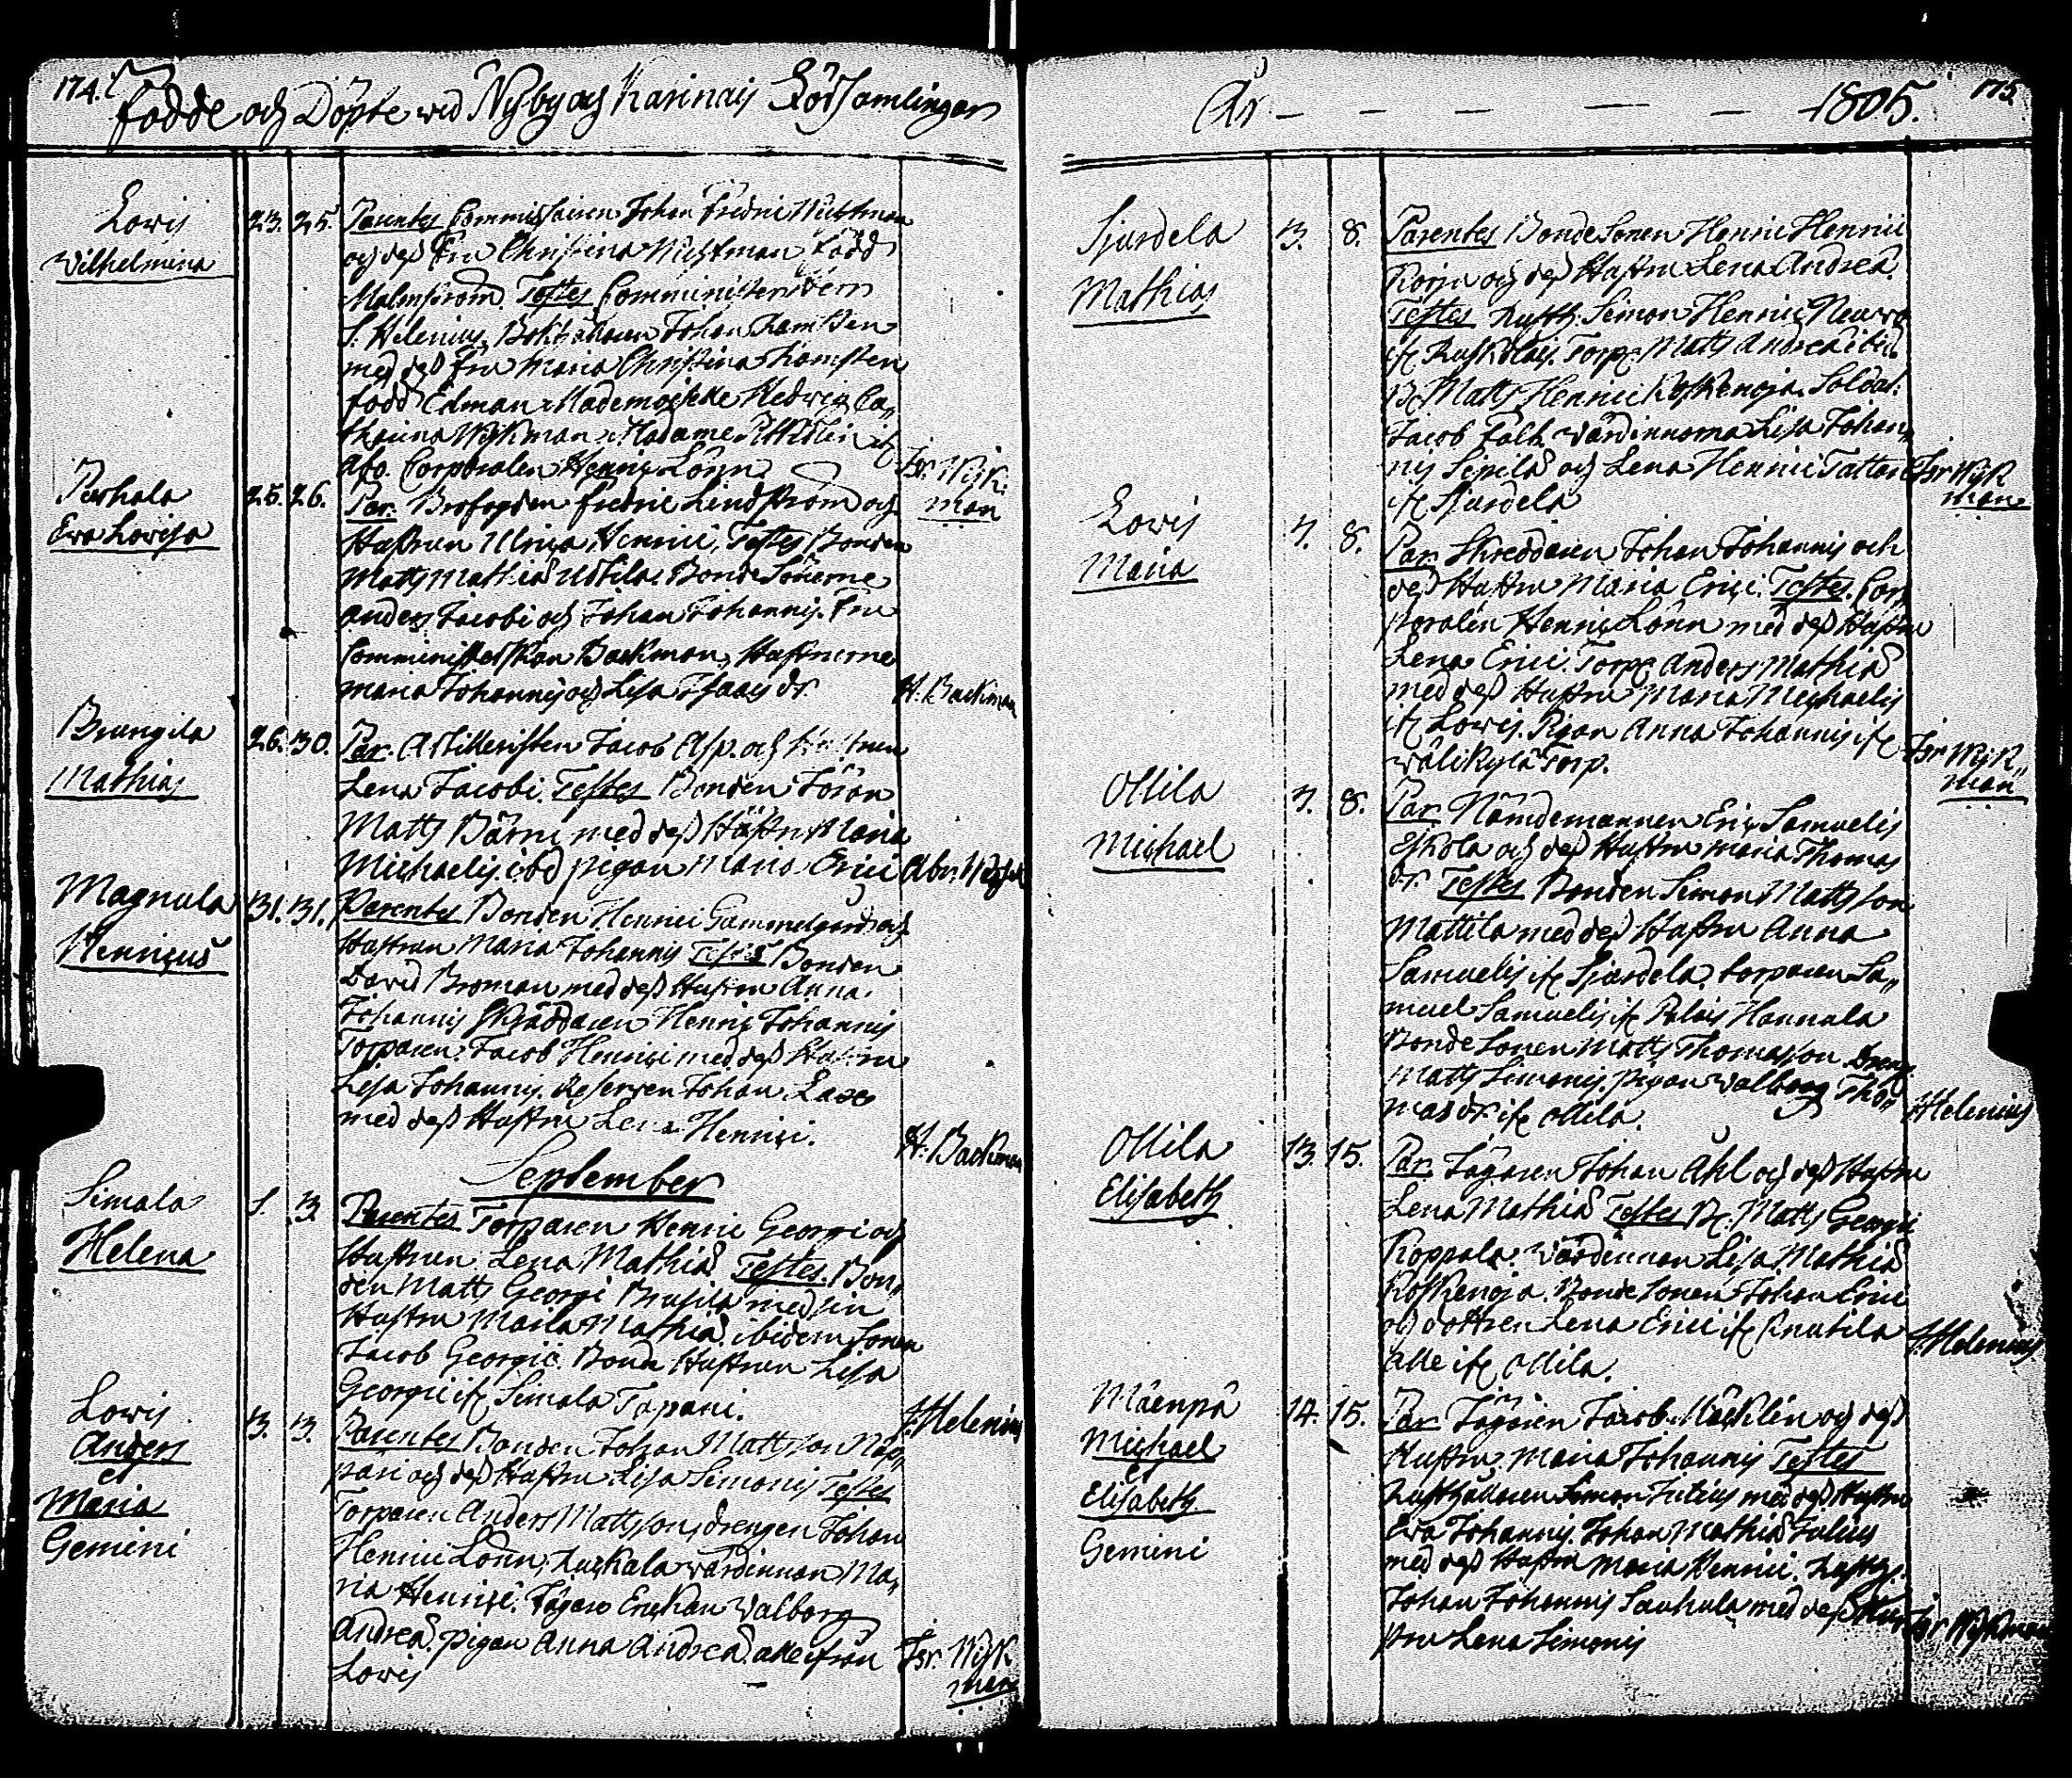 174.
Födde och Döpte wed Nyby och Karinais Församlingar
Lovis
Wilhelmina
23. 25.
Parentes Commissairen Johan Fredric Wichtman
och deß Fru Christina Wichtman född
Malmström. Testes Comministern Herr
J. Helenius. Bokhållaren Johan Ramsten
med deß Fru Maria Christina Ramsten
född Edman. Mademoiselle Hedwig Ca„
tharina Wijkman. Madame
Abo. Corporalen Henric Lönn
Isr. Wijk„
man
Perhala
Eva Lovisa
25. 26.
Par. Brofogden Fredric Lindström och
Hustrun Ulrica Henrici, Testes Bonden
Matts Mathiæ Uotila. Bonde Sönerne
Anders Jacobi och Johan Johannis. Fru
Comministerskan Backman, Hustrurne
Maria Johannis och Lisa Isaacs dr.
H. Backman
Brungila
Mathias
26. 30.
Par. Artilleristen Jacob Asp. och Hustrun
Lena Jacobi. Testes Bonden Jöran
Matts Bärni med deß Hustru Maria
Michaelis. ibd pigan Maria Erici
Abr.
Magnula
Henricus
31. 31.
Parentes Bonden Henric Gammelgård och
Hustrun Maria Johannis Testes Bonden
David Broman med deß Hustru Anna
Johannis Skräddaren Henric Johannis
Torparen Jacob Henrici med deß Hustru
Lisa Johannis. Reserven Johan Laxe
med deß Hustru Lena Henrici.
H. Backman
September
Simala
Helena
1. 3.
Parentes Torparen Henric Georgi och
Hustrun Lena Mathiæ Testes. Bon„
den Matts Georgi Brusila med sin
Hustru Maria Mathiæ. ibidem Sonen
Jacob Georgii. Bonde Hustrun Lisa
Georgii ifr. Simala Tapani.
J. Helenius
Lovis
Anders
et
Maria
Gemini
3. 3.
Parentes Bonden Johan Mattsson Nop„
pari och deß Hustru Lisa Simonis Testes
Torparen Anders Mattsson, drengen Johan
Henric Lönn, Ruskala värdinnan Ma„
ria Henrici. Jägare Enckan Valborg
Andreæ. pigan Anna Andreæ. alle ifrån
Lovis
Isr. Wijk
man
År — — — — — 1805. 175.
Sjusdela
Mathias
3. 8.
Parentes Bonde Sonen Henric Henrici
och deß Hustru Lena Andreæ
Testes Rusth. Simon Henrici Neuvo
ifr. Ruskolais. Torp. Matts Andreæ ibid.
B. Matts Henrici Koskenoja. Soldat.
Jacob Falb. Värdinnorna Lisa Johan„
nis Sipilä och Lena Henrici Tattari
ifr. Sjusdela
Isr Wijk
man
Lovis
Maria
7. 8.
Par. Skreddaren Johan Johannis och
deß Hustru Maria Erici. Testes. Cor„
poralen Henric Lönn med deß Hustru
Lena Erici. Torp. Anders Mathiæ
med deß Hustru Maria Michaelis
ifr. Lovis. Pigan Anna Johannis ifr.
Välikylä Torp.
Isr Wijk„
man
Ollila
Michael
7. 8.
Par. Nämdemannen Eric Samuelis
Eskola och deß Hustru Maria Thomas
dr. Testes Bonden Simon Mattsson
Mattila med deß Hustru Anna
Samuelis ifr. Sjusdela. torparen Sa„
muel Samuelis ifr. Pelais Hannula
Bonde Sonen Matts Thomasson Dreng.
Matts Simonis. pigan Valborg Tho„
mas dr. ifr. Ollila.
J Helenius
Ollila
Elisabeth
13. 15.
Par. Jägaren Johan Ahl och deß Hustru
Lena Mathiæ Testes B. Matts Georgii
Koppala. Värdinnan Lisa Mathiæ
Koskenoja. Bonde Sonen Johan Erici
och dottren Lena Erici ifr. Knutila
alle ifr. Ollila.
J. Helenius
Mäenpä
Michael
et
Elisabeth
Gemini
14. 15.
Par. Jägaren Jacob Mäcklin och deß
Hustru Maria Johannis Testes
Rusthållaren Simon Julius med deß Hustru
Eva Johannis. Johan Mathiæ Julius
med deß Hustru Maria Henrici. Rusth.
Johan Johannis Sauhula med deß Hu„
stru Lena Simonis
Isr Wijkman